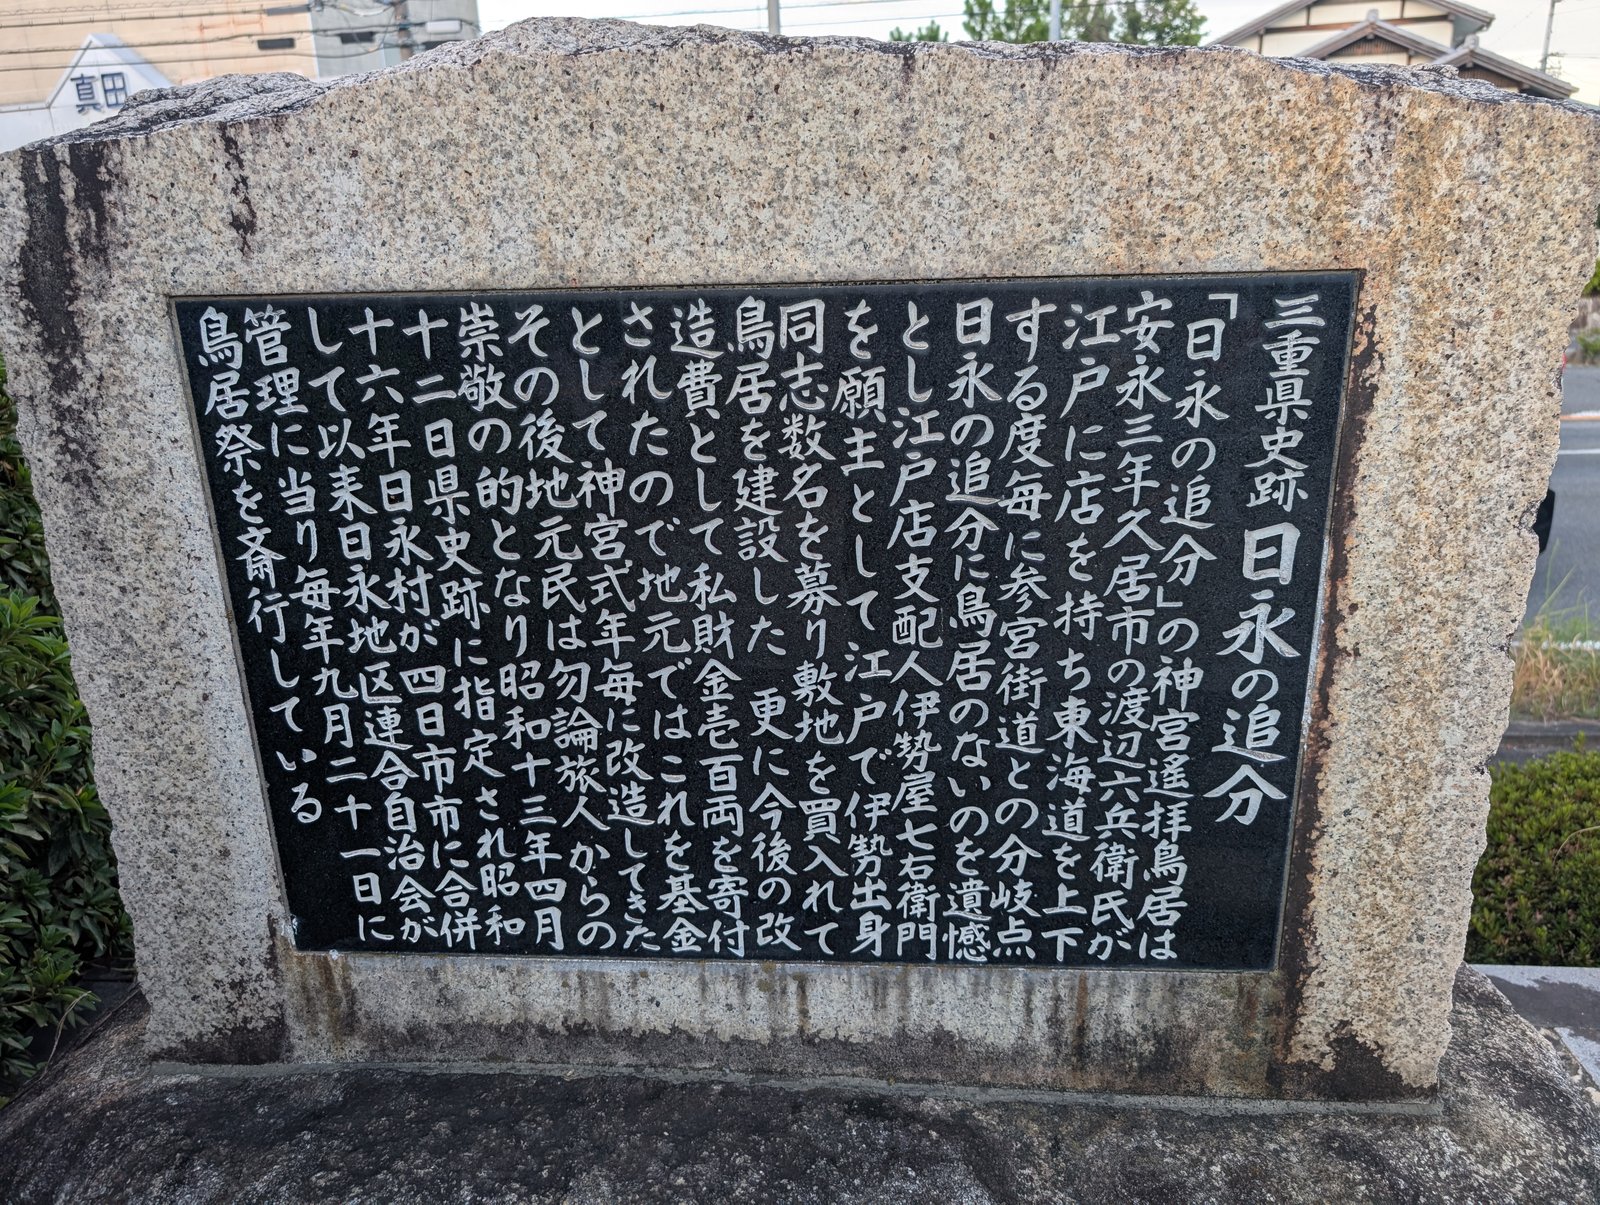 三重県史跡 日永の追分
「日永の追分」の神宮遙拝鳥居は
安永三年久居市の渡辺六兵衛氏が
江戸に店を持ち東海道を上下
する度毎に参宮街道との分岐点
日永の追分に鳥居のないのを遺憾
とし江戸店支配人伊勢屋七右衛門
を願主として江戸で伊勢出身
同志数名を募り敷地を買入れて
鳥居を建設した 更に今後の改
造費として私財金壱百両を寄付
されたので地元ではこれを基金
として神宮式年毎に改造してきた
その後地元民は勿論旅人からの
崇敬の的となり昭和十三年四月
十二日県史跡に指定され昭和
十六年日永村が四日市市に合併
して以来日永地区連合自治会が
管理に当り毎年九月二十一日に
鳥居祭を斎行している
真田